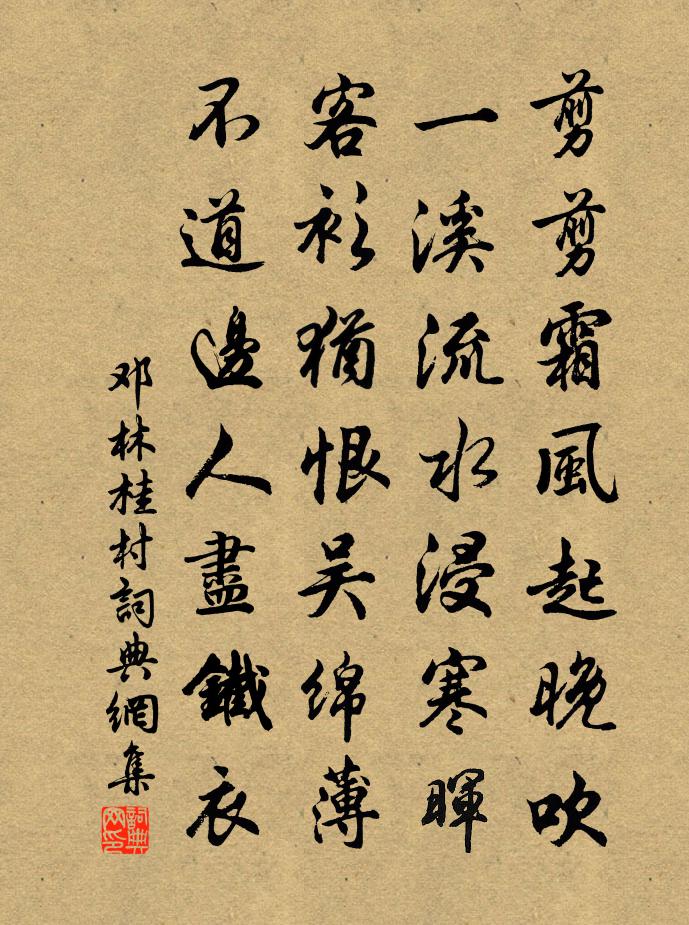 剪剪霜風起晚吹
一溪流水浸寒暉
客衫猶恨吴綿薄
不道邊人盡鐵衣
邓林桂村詞典網集
詞典网印